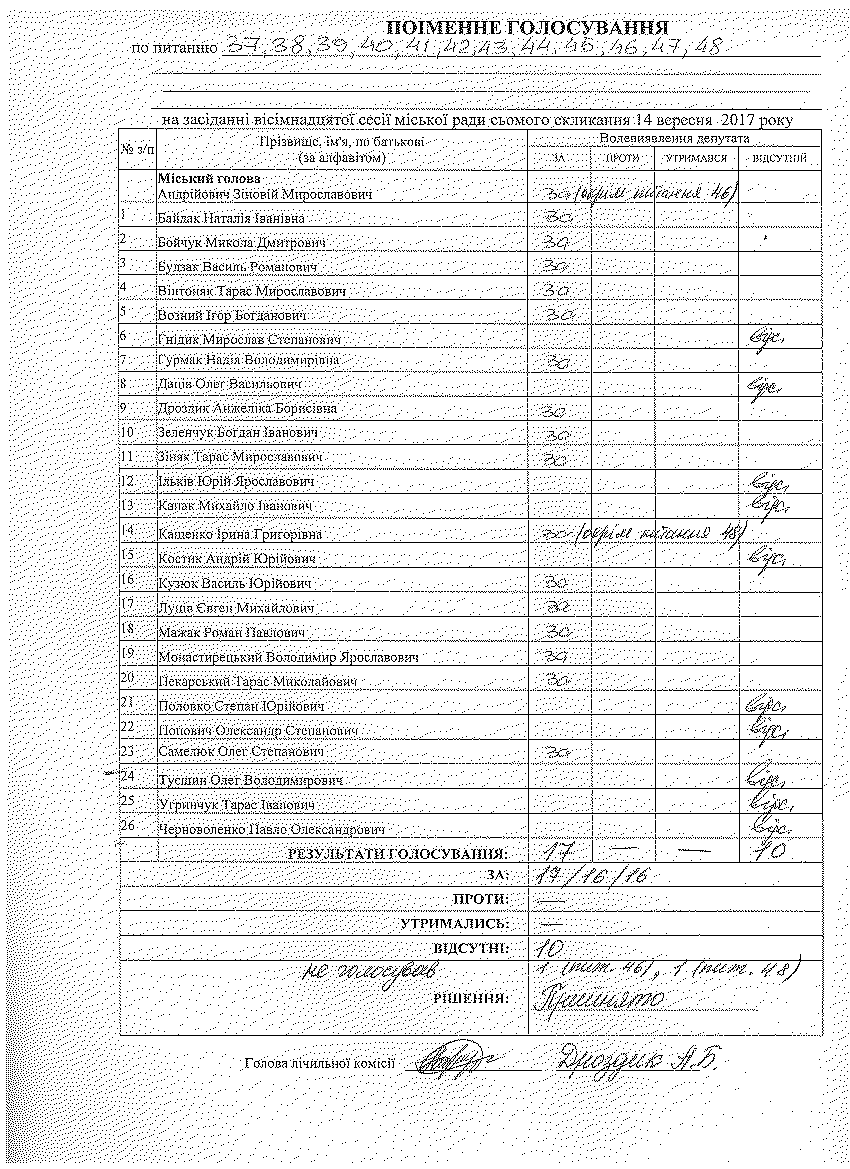 ПОІМЕННЕ ГОЛОСУВАННЯ
по питанню 37, 38, 39, 40, 41, 42, 43, 44, 45, 46, 47, 48
на засіданні вісімнадцятої сесії міської ради сьомого скликання 14 вересня 2017 року
№ з/п Прізвище, ім'я, по батькові (за алфавітом) Волевиявлення депутата
ЗА ПРОТИ УТРИМАВСЯ ВІДСУТНІЙ
Міський голова
Андрійович Зіновій Мирославович за (окрім питання 46)
1 Байдак Наталія Іванівна за
2 Бойчук Микола Дмитрович за
3 Будзак Василь Романович за
4 Вінтоняк Тарас Мирославович за
5 Возний Ігор Богданович за
6 Гнідик Мирослав Степанович відс.
7 Гурмак Надія Володимирівна за
8 Даців Олег Васильович відс.
9 Дроздик Анжеліка Борисівна за
10 Зеленчук Богдан Іванович за
11 Зіняк Тарас Мирославович за
12 Ільків Юрій Ярославович відс.
13 Капак Михайло Іванович відс.
14 Кащенко Ірина Григорівна за (окрім питання 48)
15 Костик Андрій Юрійович відс.
16 Кузюк Василь Юрійович за
17 Луців Євген Михайлович за
18 Мажак Роман Павлович за
19 Монастирецький Володимир Ярославович за
20 Пекарський Тарас Миколайович за
21 Половко Степан Юрійович відс.
22 Попович Олександр Степанович відс.
23 Самелюк Олег Степанович за
24 Тусшин Олег Володимирович відс.
25 Угринчук Тарас Іванович відс.
26 Черноволенко Павло Олександрович відс.
РЕЗУЛЬТАТИ ГОЛОСУВАННЯ: 17 — — 10
ЗА: 17/16/16
ПРОТИ: —
УТРИМАЛИСЬ: —
ВІДСУТНІ: 10
не голосував 1 (пит. 46), 1 (пит. 48)
РІШЕННЯ: Прийнято
Голова лічильної комісії Дроздик А.Б.